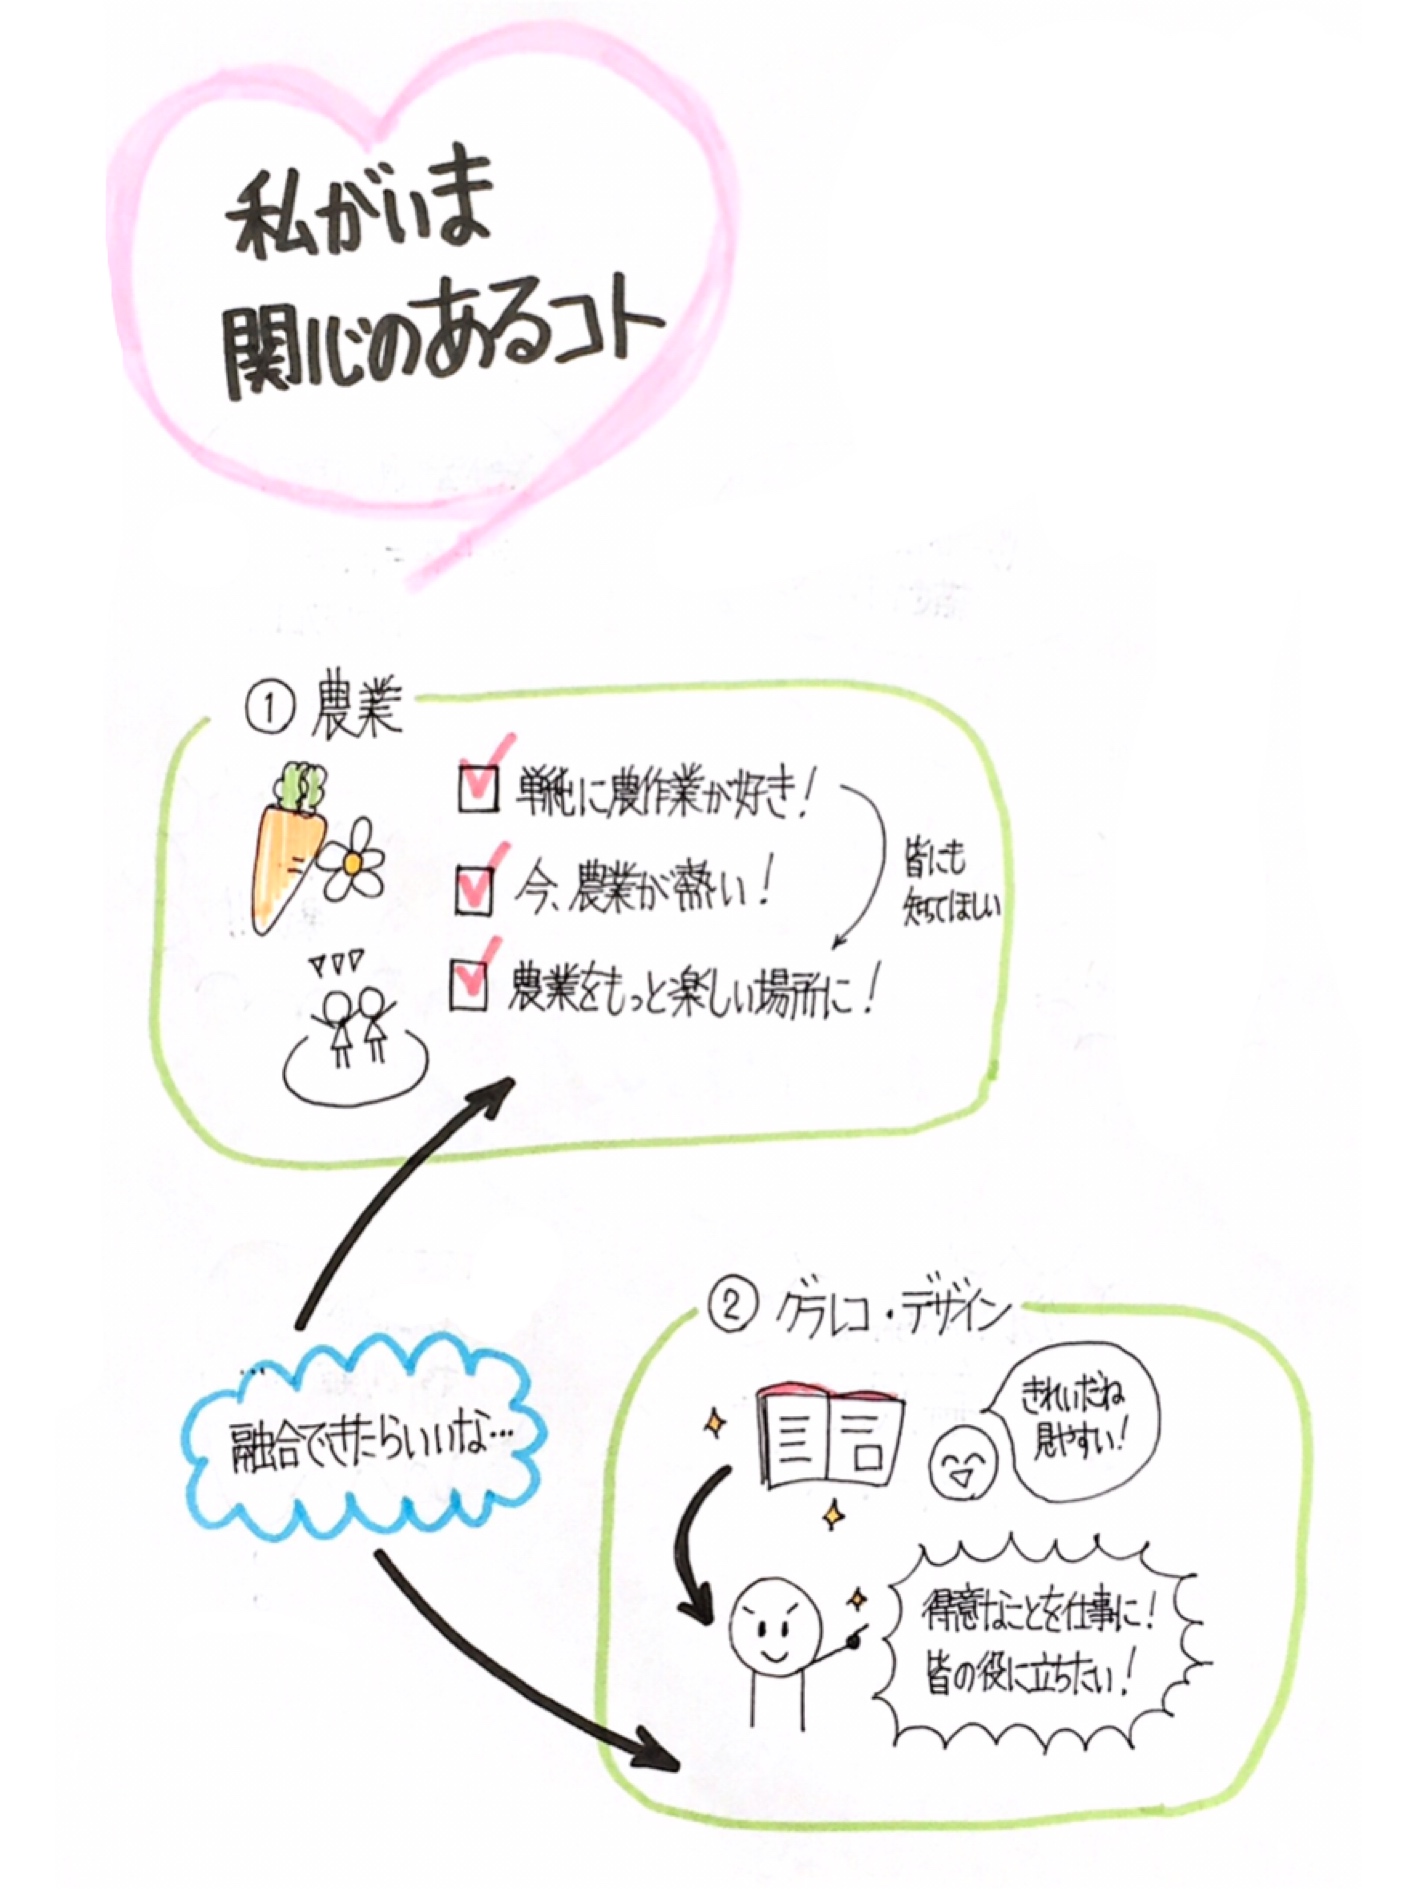 私がいま
関心のあるコト
① 農業
単純に農作業が好き！
今、農業が熱い！
農業をもっと楽しい場所に！
皆にも
知ってほしい
融合できたらいいな…
② グラレコ・デザイン
きれいだね
見やすい！
得意なことを仕事に！
皆の役に立ちたい！